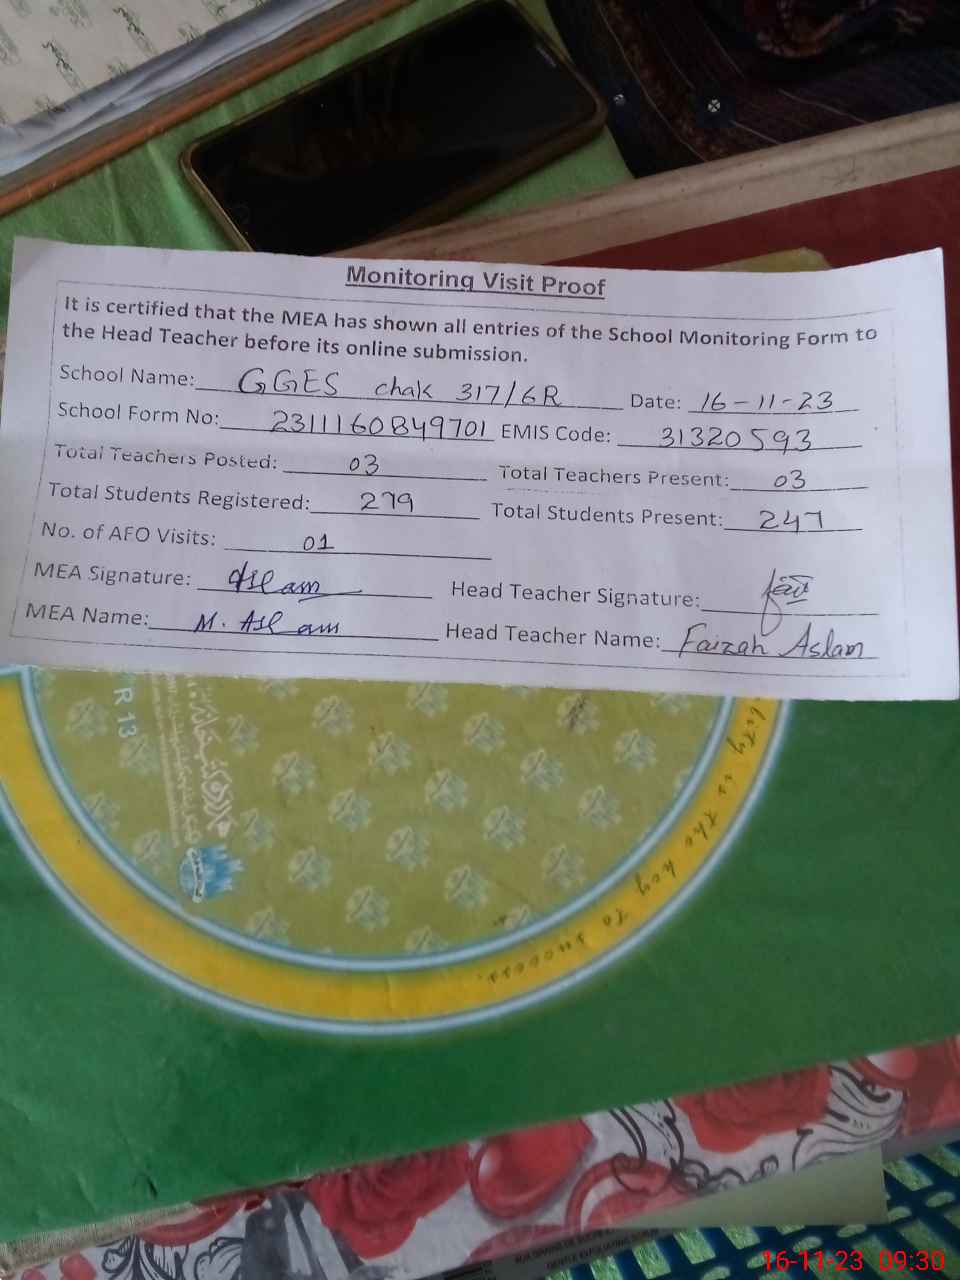 Monitoring Visit Proof
It is certified that the MEA has shown all entries of the School Monitoring Form to
the Head Teacher before its online submission.
School Name: GGES chak 317/6R Date: 16-11-23
School Form No: 2311160849701 EMIS Code: 31320593
Total Teachers Posted: 03 Total Teachers Present: 03
Total Students Registered: 279 Total Students Present: 247
No. of AFO Visits: 01
MEA Signature: Aslam Head Teacher Signature:
MEA Name: M. Aslam Head Teacher Name: Faizah Aslam
R 13
is the key to success.
16-11-23 09:30